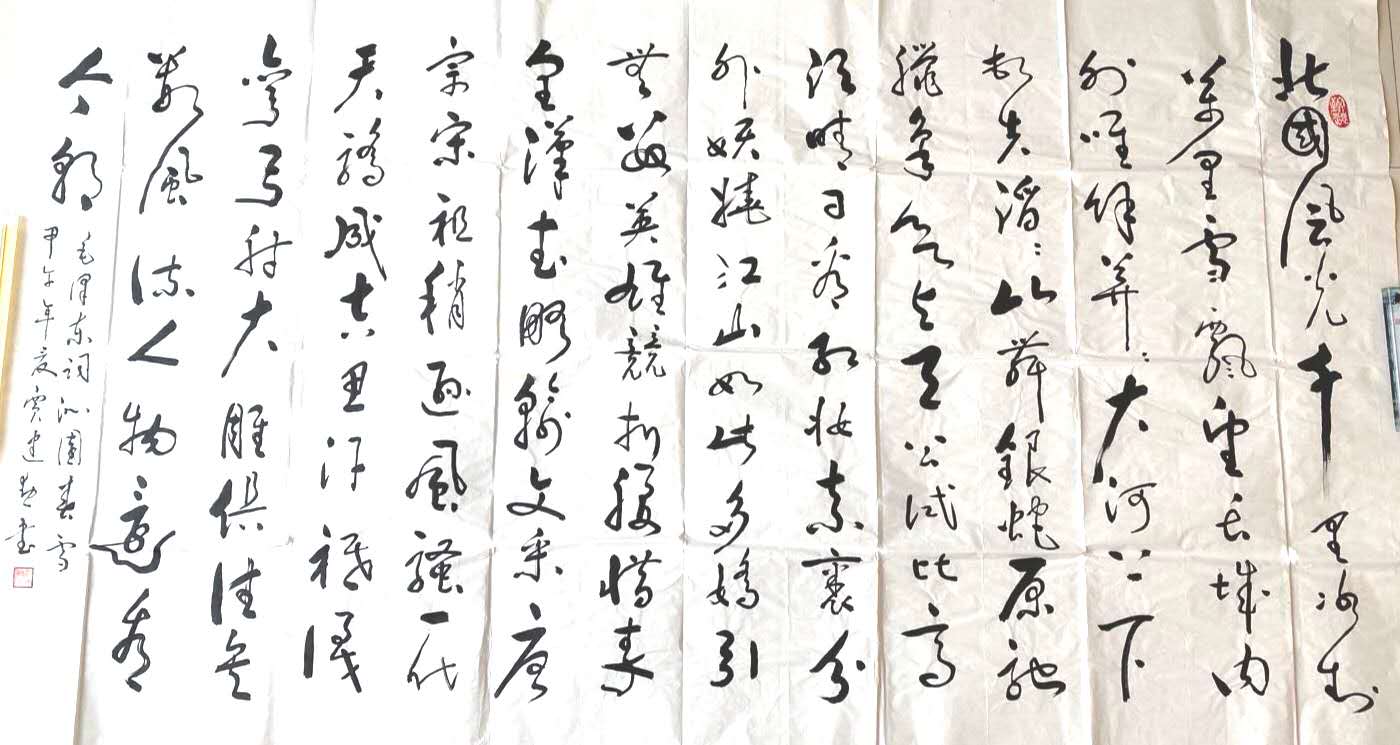 北國風光千里冰封
萬里雪飄望長城內
外唯餘莽〻大河上下
頓失滔〻山舞銀蛇原馳
臘象欲与天公試比高
須晴日看紅妝素裹分
外妖嬈江山如此多嬌引
無數英雄競折腰惜秦
皇漢武略輸文采唐
宗宋祖稍遜風騷一代
天驕成吉思汗祗識
彎弓射大雕俱往矣
數風流人物還看
今朝
毛澤東詞沁園春雪
甲午年夏建書